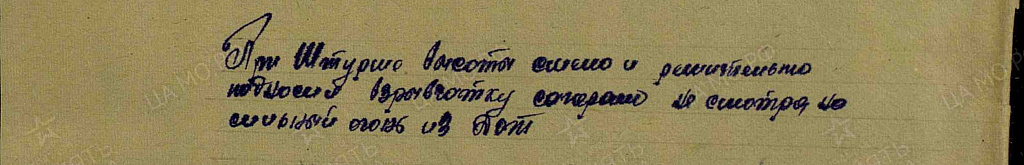 При Штурме высоты смело и решительно
подносил взрывчатку саперам не смотря на
сильный огонь из Дот